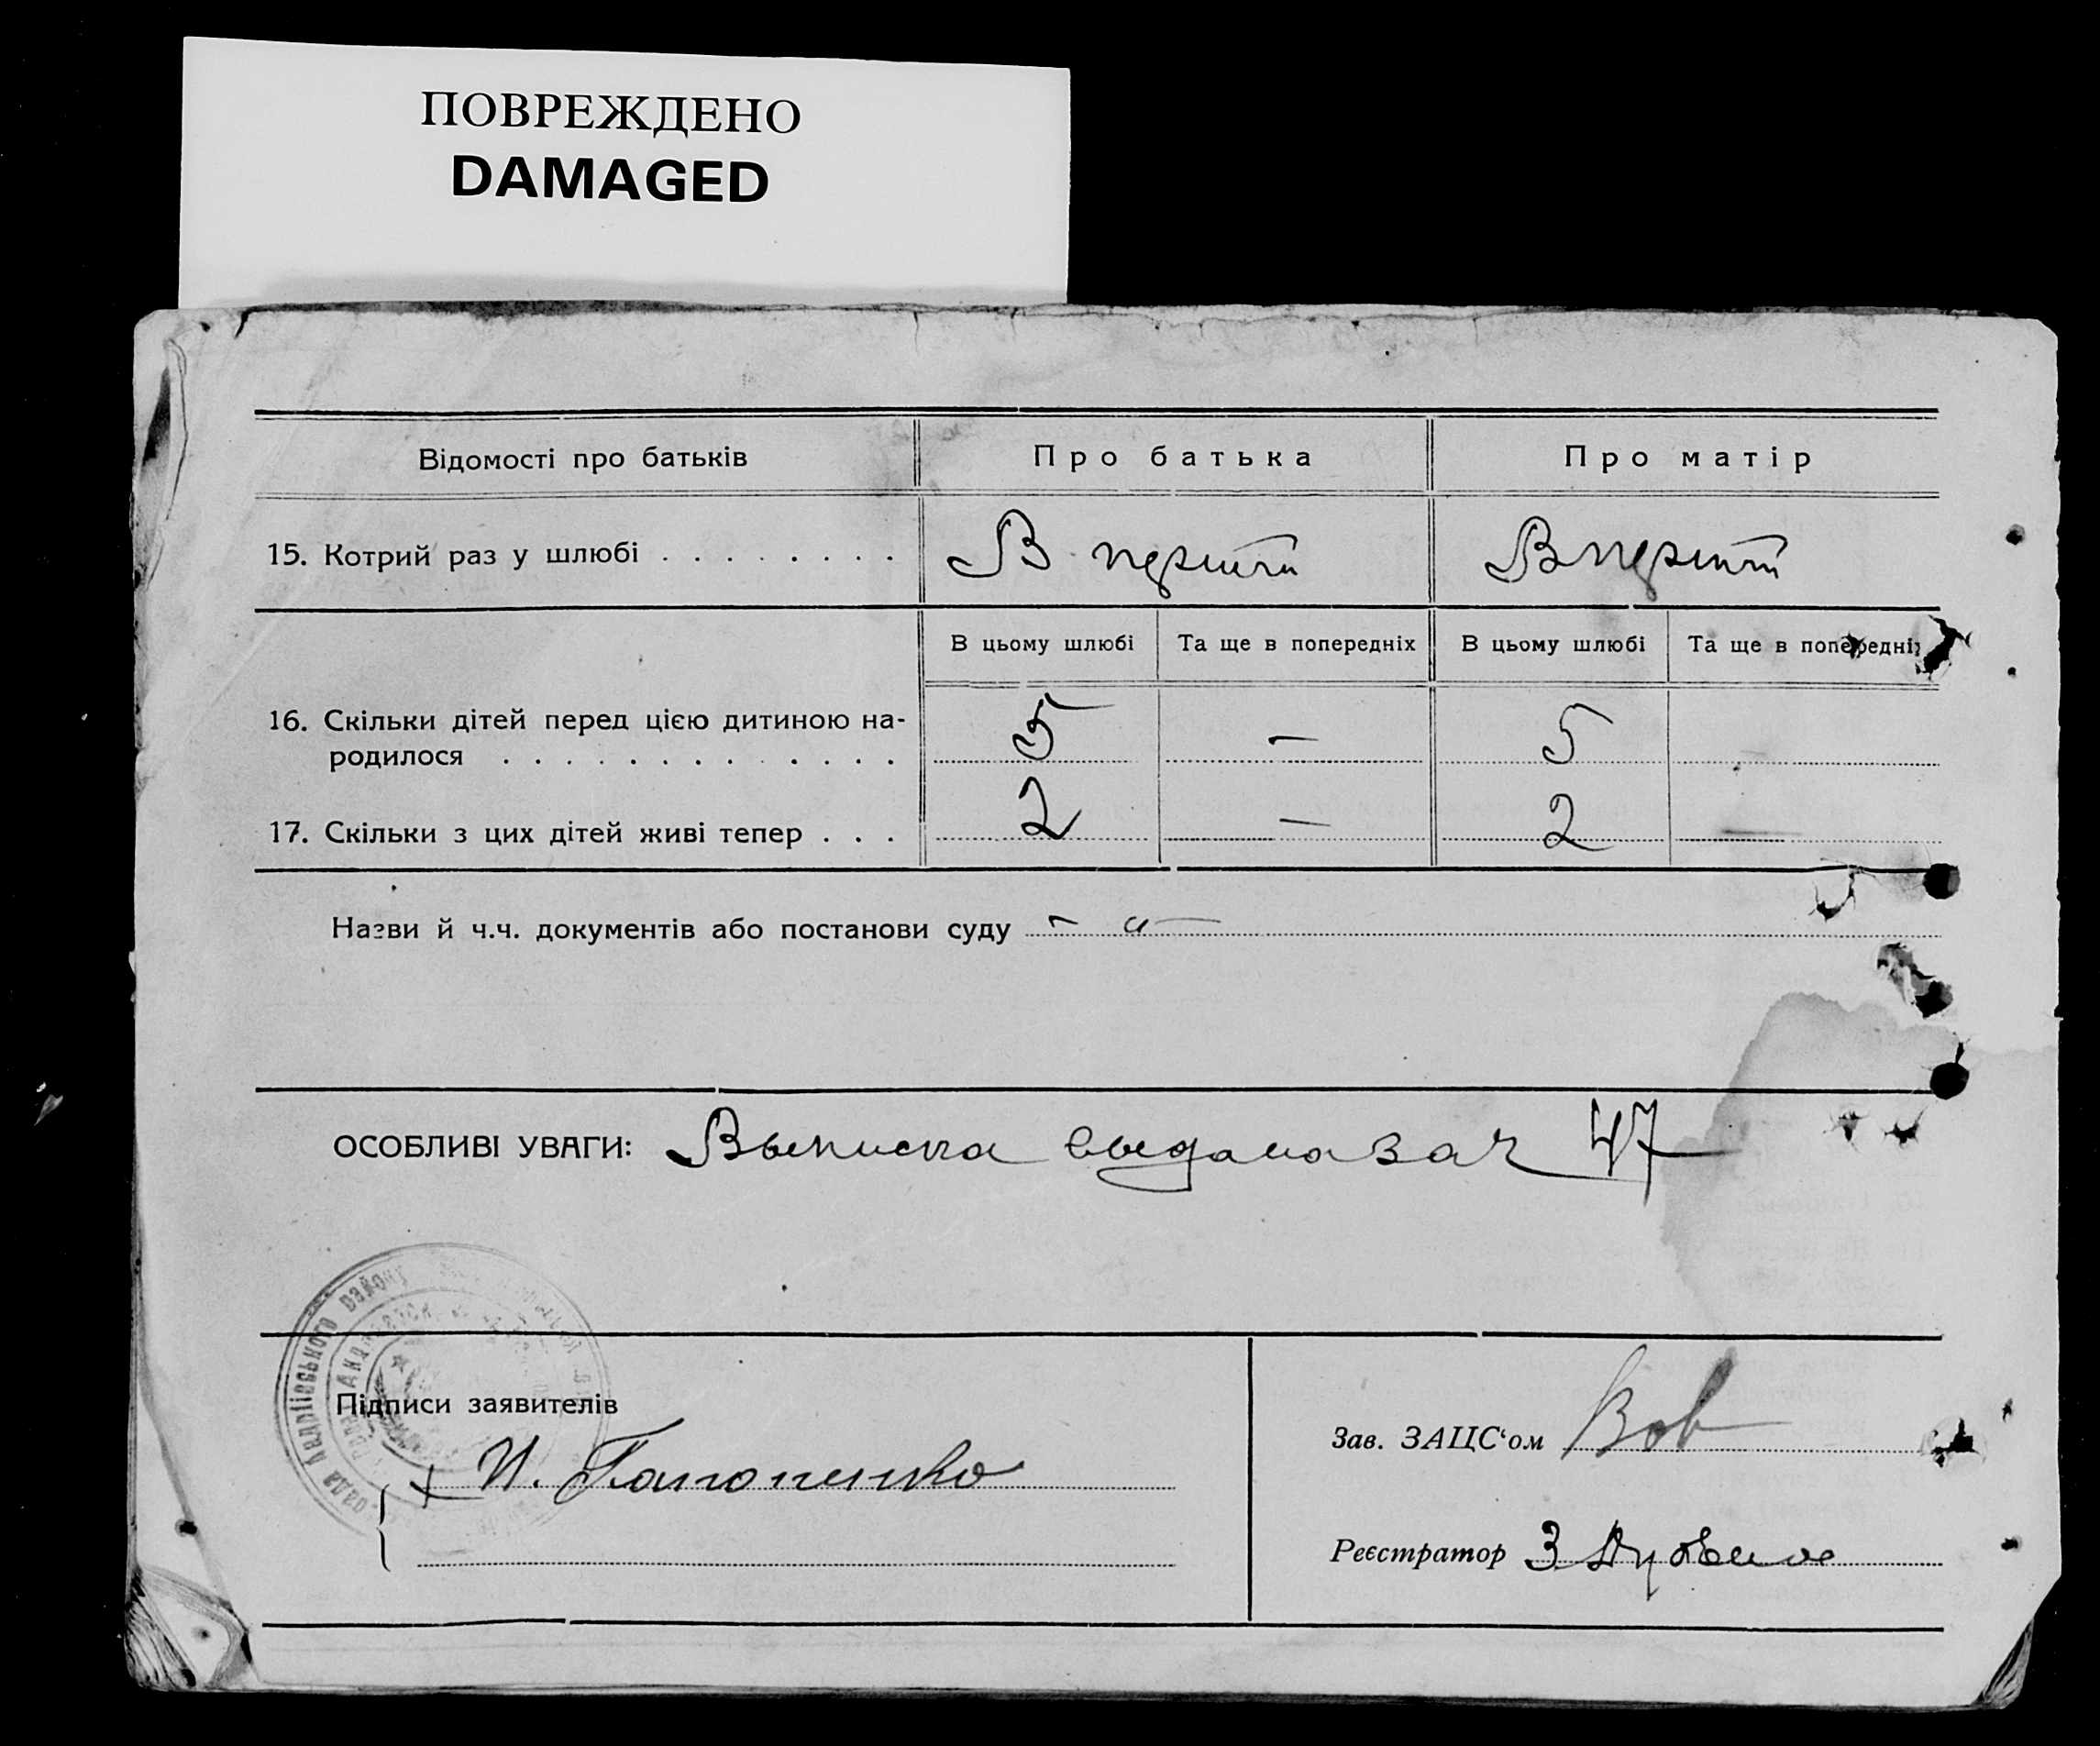 ПОВРЕЖДЕНО
DAMAGED
Відомості про батьків
Про батька
Про матір
15. Котрий раз у шлюбі
В перший
В перший
В цьому шлюбі
Та ще в попередніх
В цьому шлюбі
Та ще в попередні
16. Скільки дітей перед цією дитиною на-
родилося
5
—
5
—
17. Скільки з цих дітей живі тепер
2
—
2
—
Назви й ч.ч. документів або постанови суду — „ —
ОСОБЛИВІ УВАГИ: Выписка выдана за ч 47
району
Підписи заявителів
И.
Зав. ЗАЦС‘ом
Реєстратор З